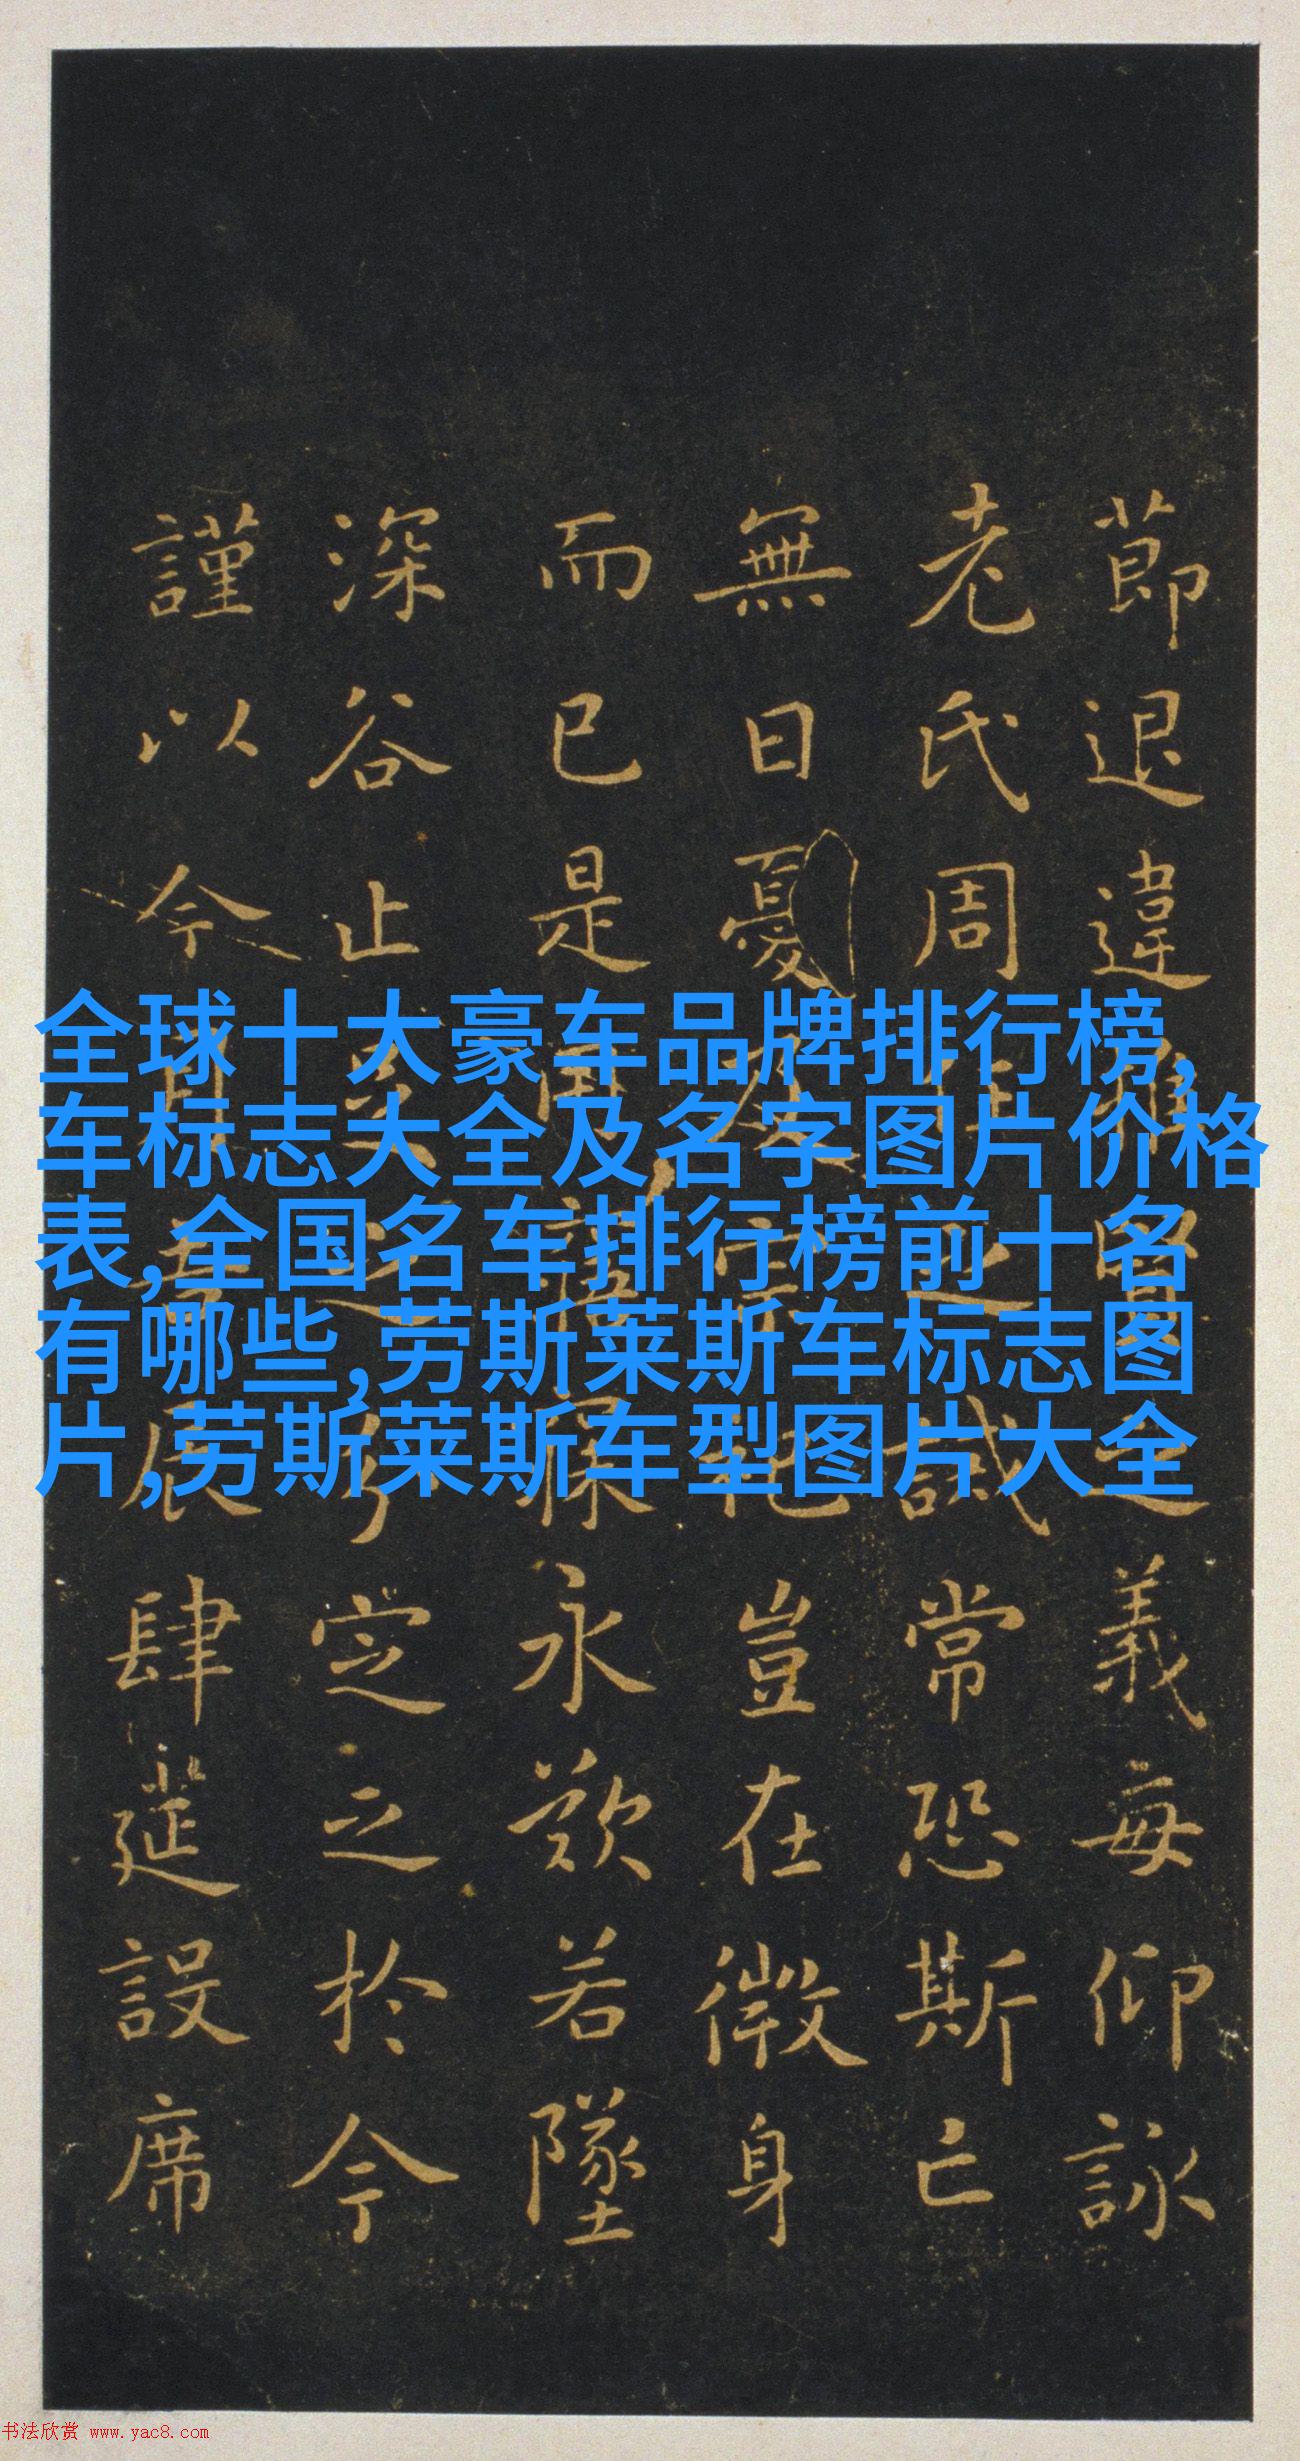 全球十大豪车品牌排行榜,
车标志大全及名字图片价格
表,全国名车排行榜前十名
有哪些,劳斯莱斯车标志图
片,劳斯莱斯车型图片大全
節退違
義每仰詠
老氏周
誡常恐斯亡
無日憂
豈在微身
而已是
永歎若墜
深谷止
定之於今
謹以今
辰肆筵設席
书法欣赏 www.yac8.com